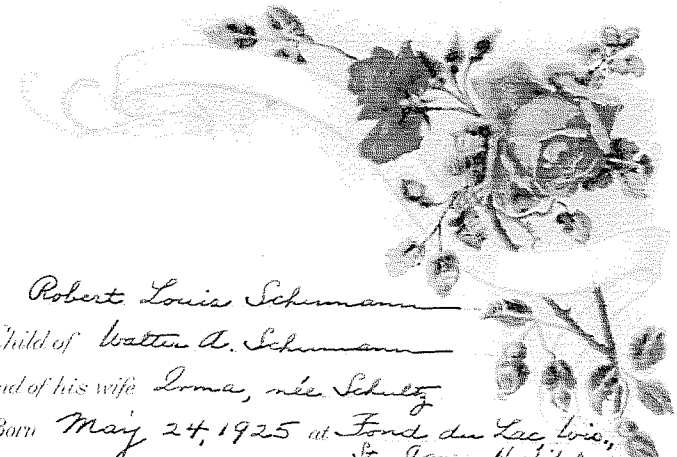 Robert Louis Schumann
Child of Walter A. Schumann
and of his wife Irma, née Schultz
Born May 24, 1925 at Fond du Lac, Wis.,
St. Agnes